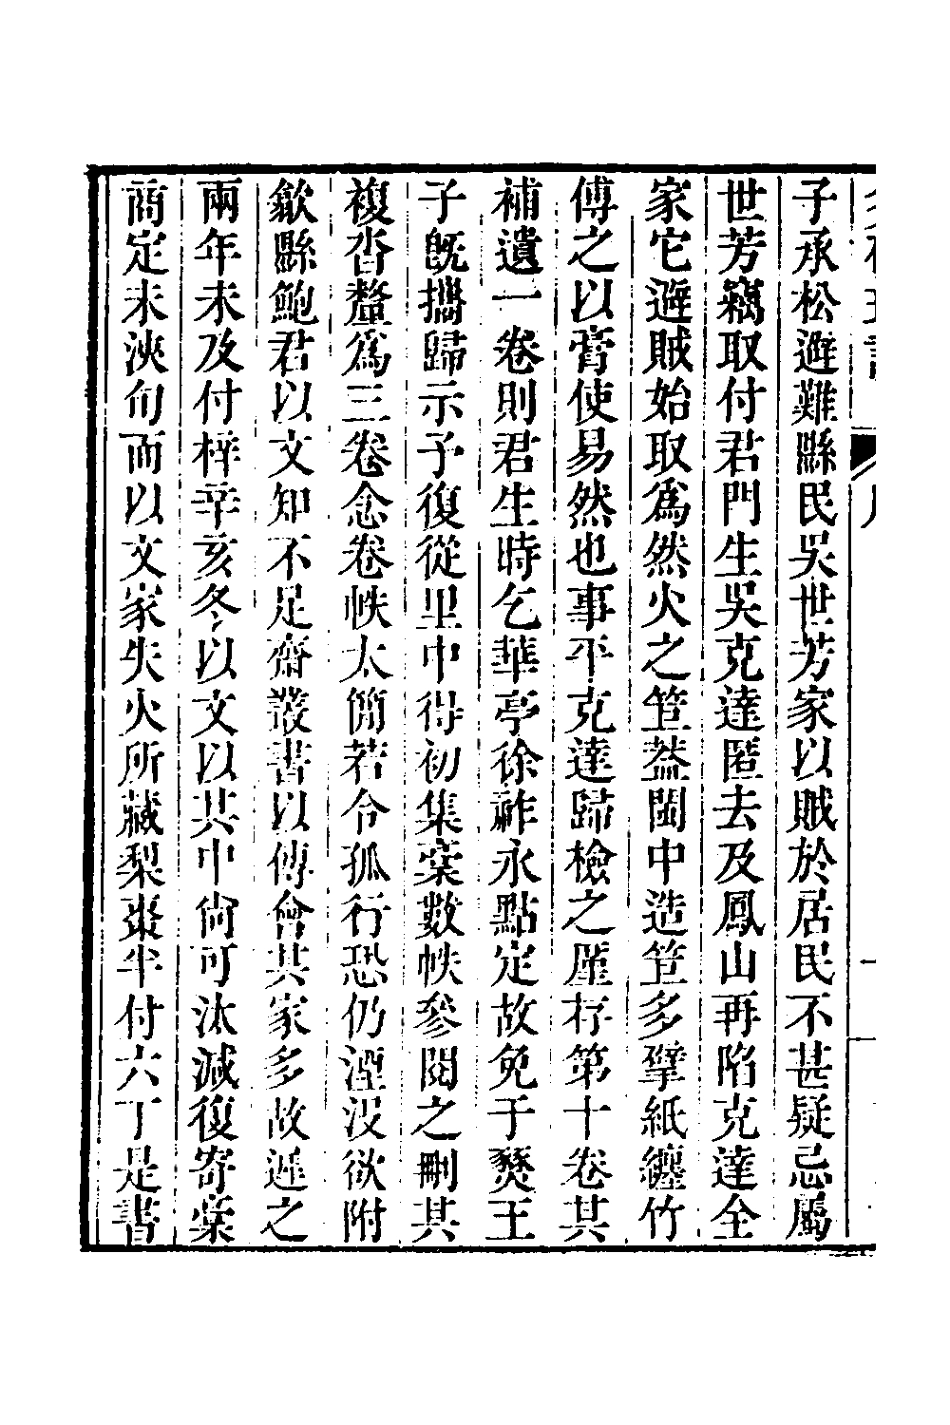 子承松避難縣民吳世芳家以賊於居民不甚疑忌屬
世芳竊取付君門生吳克達匿去及鳳山再陷克達全
家它避賊始取爲然火之笪葢閩中造笪多擘紙纏竹
傅之以膏使易然也事平克達歸檢之厪存第十卷其
補遺一卷則君生時乞華亭徐祚永點定故免于燹王
子旣攜歸示予復從里中得初集稾數帙參閱之刪其
複沓釐爲三卷念卷帙太簡若令孤行恐仍湮沒欲附
歙縣鮑君以文知不足齋叢書以傳會其家多故遲之
兩年未及付梓辛亥冬以文以其中尙可汰減復寄稾
商定未浹旬而以文家失火所藏梨棗半付六丁是書